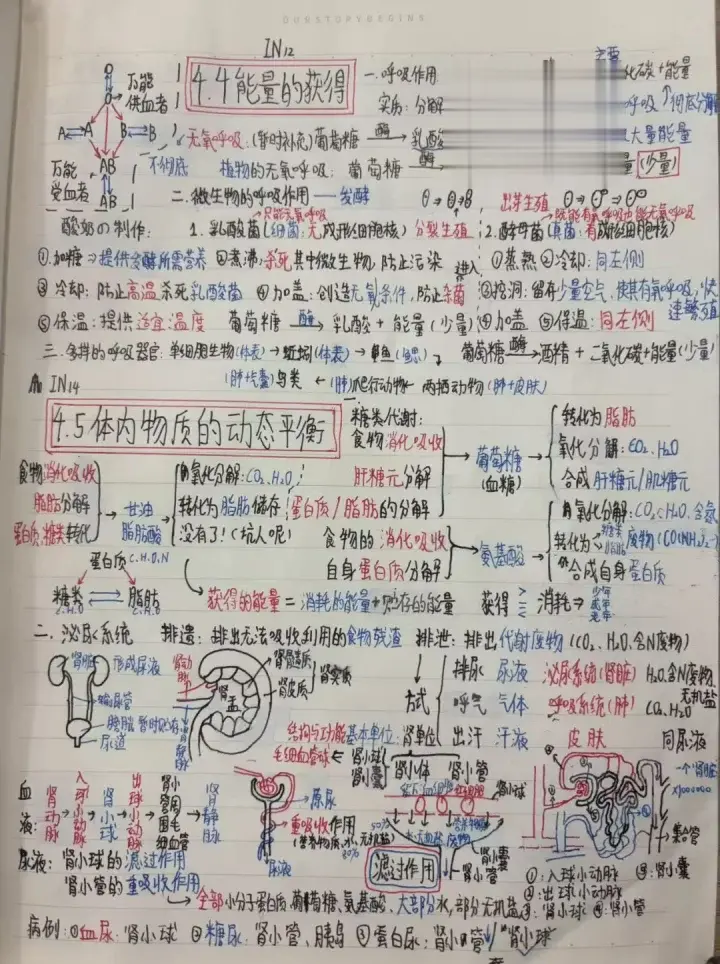 OURSTORYBEGINS
IN12
万能
供血者
A A B B
AB
万能
受血者
AB
4.4能量的获得
一.呼吸作用
实质:分解
化碳+能量
呼吸
彻底分解
大量能量
(少量)
无氧呼吸:(暂时补充)葡萄糖 酶→ 乳酸
不彻底
植物的无氧呼吸:葡萄糖 酶
二.微生物的呼吸作用——发酵
出芽生殖
只能无氧呼吸
既能有氧呼吸也能无氧呼吸
酸奶の制作:
1.乳酸菌(细菌:无成形细胞核)分裂生殖
2.酵母菌(真菌:有成形细胞核)
①加糖⇒提供发酵所需营养 ②煮沸,杀死其中微生物,防止污染
①蒸熟 ②冷却:同左侧
③冷却:防止高温杀死乳酸菌 ④加盖:创造无氧条件,防止杂菌进入
③挖洞:留有少量空气,使其有氧呼吸,快速繁殖
⑤保温:提供适宜温度 葡萄糖 酶→ 乳酸+能量(少量)
④加盖 ⑤保温:同左侧
葡萄糖 酶→ 酒精+二氧化碳+能量(少量)
三.多样的呼吸器官:单细胞生物(体表)→蚯蚓(体表)→鱼(鳃)
(肺+气囊)鸟类←(肺)爬行动物←两栖动物(肺+皮肤)
IN14
4.5体内物质的动态平衡
糖类代谢:
食物消化吸收
肝糖元分解
蛋白质/脂肪的分解
葡萄糖
(血糖)
转化为脂肪
氧化分解:CO2、H2O
合成肝糖元/肌糖元
食物消化吸收
脂肪分解
蛋白质、糖类转化
甘油
脂肪酸
氧化分解:CO2、H2O
转化为脂肪储存
没有了!(坑人呢)
食物的消化吸收
自身蛋白质分解
氨基酸
氧化分解:CO2、H2O、含氮废物(CO(NH2)2)
转化为糖类脂肪
合成自身蛋白质
蛋白质 C.H.O.N
糖类 C.H.O
脂肪 C.H.O
获得的能量=消耗的能量+贮存的能量
获得 > = < 消耗⇒少年 成年 老年
二.泌尿系统
排遗:排出无法吸收利用的食物残渣
排泄:排出代谢废物(CO2、H2O、含N废物)
肾脏 形成尿液
输尿管
膀胱 暂时贮存
尿道
肾动脉
肾静脉
肾盂
肾髓质
肾皮质
肾实质
方式
排尿 尿液 泌尿系统(肾脏) H2O、含N废物、无机盐
呼气 气体 呼吸系统(肺) CO2、H2O
出汗 汗液 皮肤 同尿液
结构与功能基本单位:肾单位
毛细血管球←肾小球
肾小囊
肾小体
肾小管
血液:肾动脉→入球小动脉→肾小球→出球小动脉→肾小管周围毛细血管→肾静脉
原尿
重吸收作用
(营养物质、水、无机盐)
尿液
肾小球
滤过作用
肾小囊
肾小管
一个肾脏
×1000000
集合管
尿液:肾小球的滤过作用
肾小管的重吸收作用
全部小分子蛋白质、葡萄糖、氨基酸、大部分水,部分无机盐
①:入球小动脉 ⑤:肾小囊
②:出球小动脉
③:肾小球 ④:肾小管
病例:①血尿:肾小球 ②糖尿:肾小管、胰岛 ③蛋白尿:肾小管/肾小球